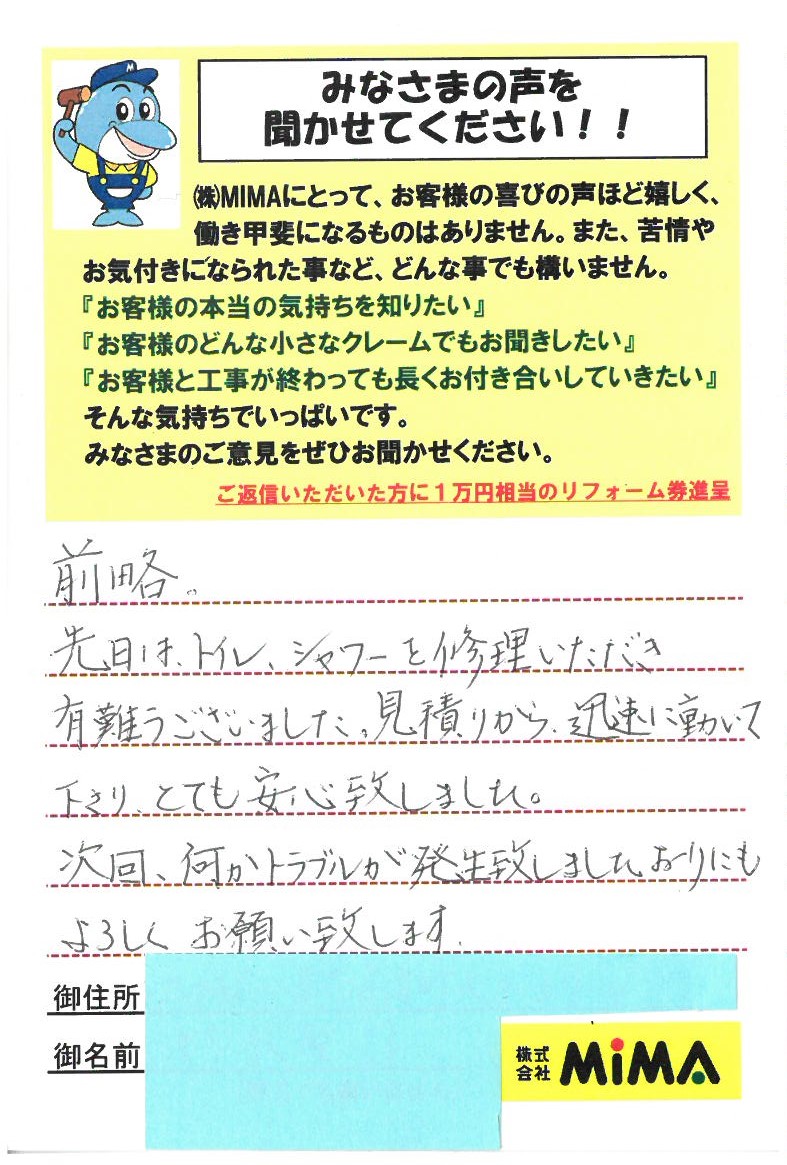 M
みなさまの声を
聞かせてください！！
㈱MIMAにとって、お客様の喜びの声ほど嬉しく、
働き甲斐になるものはありません。また、苦情や
お気付きになられた事など、どんな事でも構いません。
『お客様の本当の気持ちを知りたい』
『お客様のどんな小さなクレームでもお聞きしたい』
『お客様と工事が終わっても長くお付き合いしていきたい』
そんな気持ちでいっぱいです。
みなさまのご意見をぜひお聞かせください。
ご返信いただいた方に１万円相当のリフォーム券進呈
前略。
先日は、トイレ、シャワーを修理いただき
有難うございました。見積りから、迅速に動いて
下さり、とても安心致しました。
次回、何かトラブルが発生致しましたおりにも
よろしくお願い致します。
御住所
御名前
株式会社 MiMA